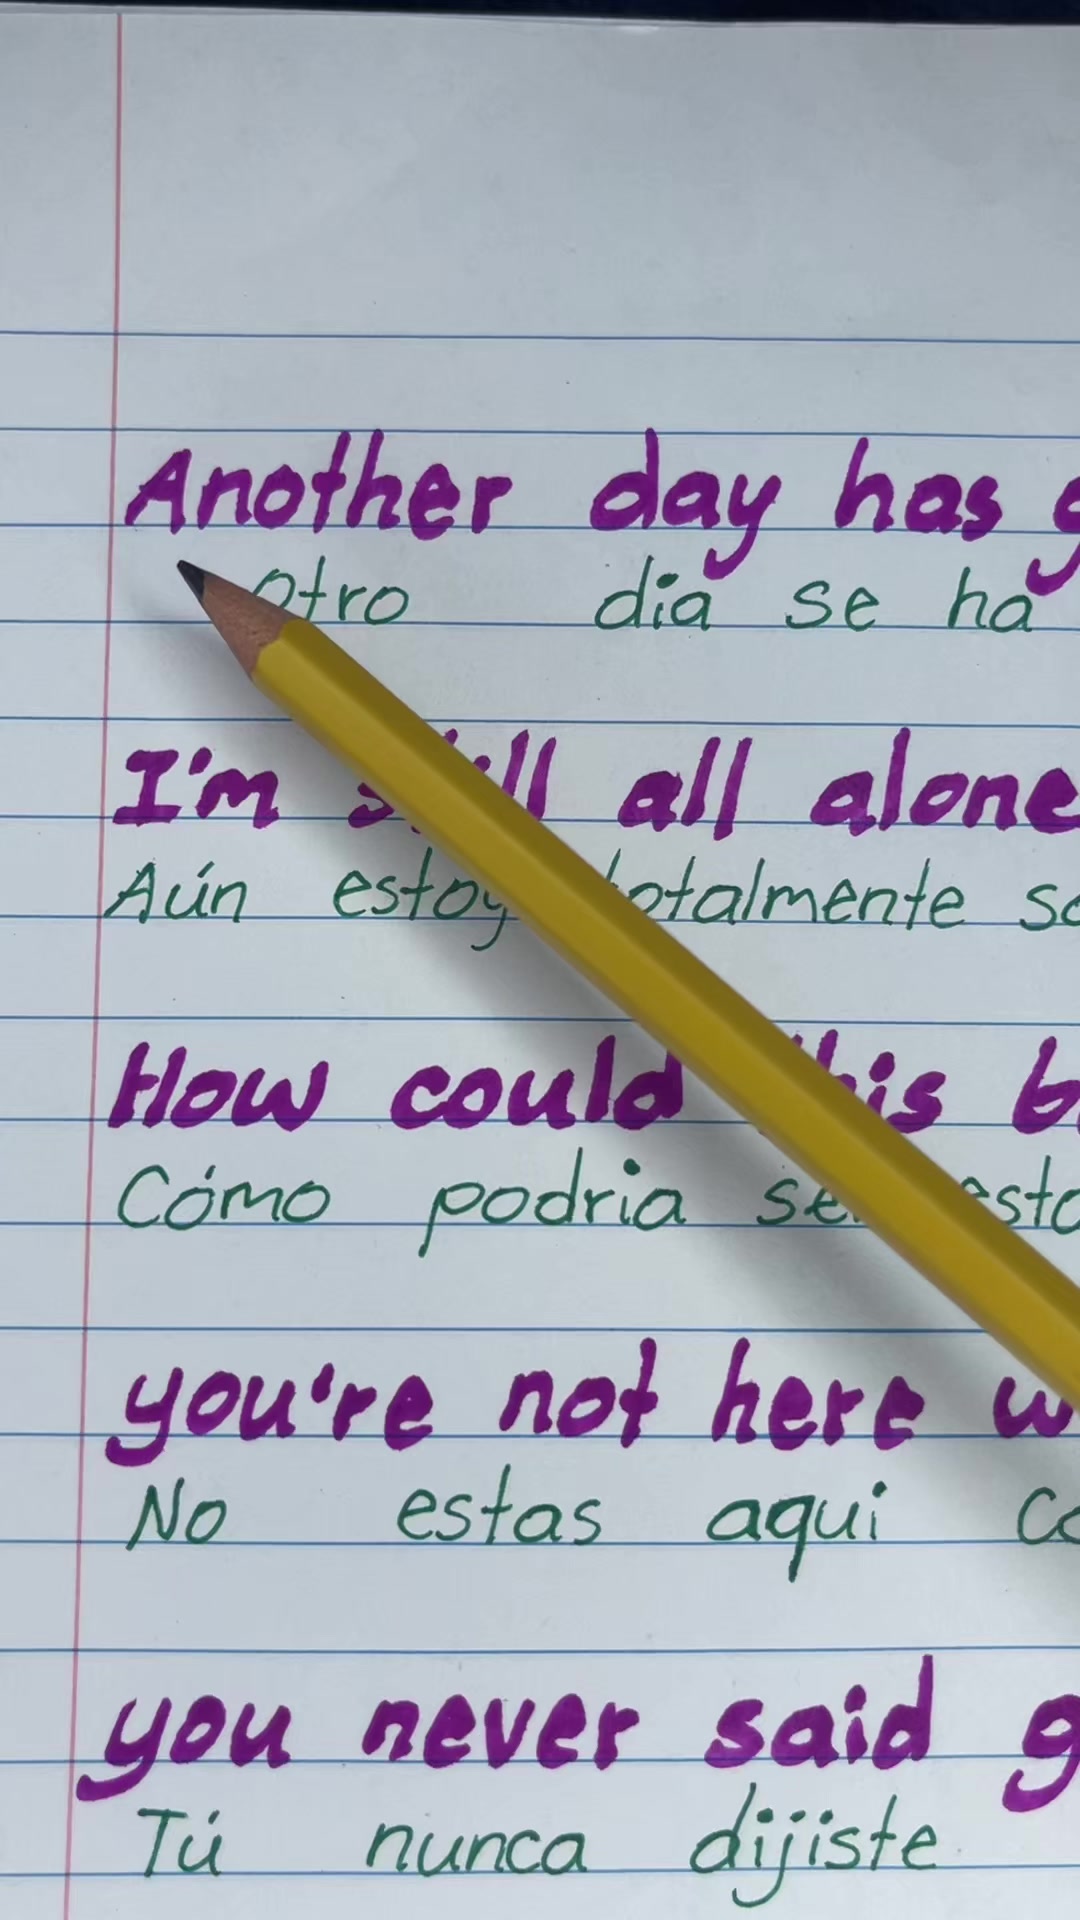 Another day has
otro dia se ha
I'm all alone
Aún estoy totalmente
How could this
Cómo podria esto
you're not here
No estas aqui
you never said
Tú nunca dijiste